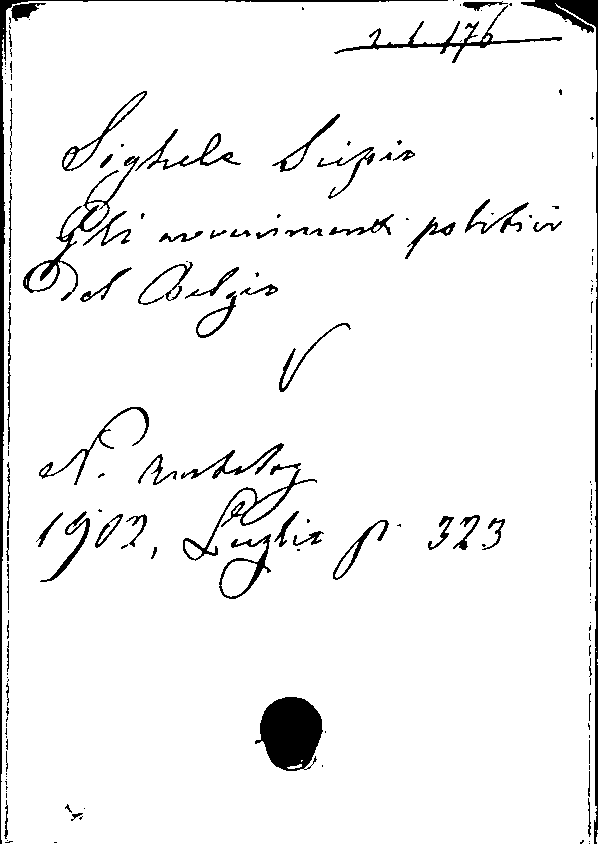 2. L. 176
Sighele Scipio
Gli avvenimenti politici
del Belgio
V
N. Antolog
1902, Luglio p. 323